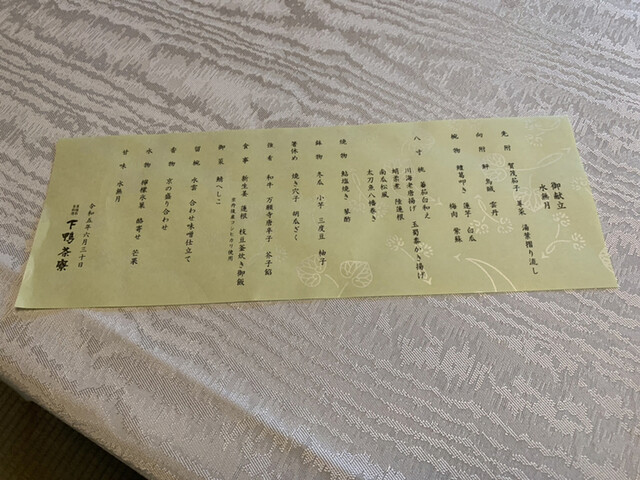 御献立
水無月
先附 賀茂茄子 蓴菜 海葉摺り流し
向附 鮮 烏賊 雲丹
椀物 鱧葛叩き 蓮芋 白瓜
梅肉 紫蘇
八寸 枕 蕃茄白和え
川海老唐揚げ 玉蜀黍かき揚げ
蛸柔煮 陸蓮根
南瓜松風
太刀魚八幡巻き
焼物 鮎塩焼き 蓼酢
鉢物 冬瓜 小芋 三度豆 柚子
箸休め 焼き穴子 胡瓜ざく
強肴 和牛 万願寺唐辛子 芥子餡
食事 新生姜 蓮根 枝豆釜炊き御飯
京丹後産コシヒカリ使用
御菜 鯖へしこ
留椀 水雲 合わせ味噌仕立て
香物 京の盛り合わせ
水物 樺櫻氷菓 酪寄せ 芒果
甘味 水無月
令和五年六月三十日
下鴨茶寮